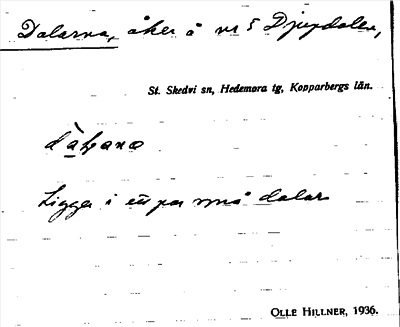 Dalarna, åker å nr 5 Djupdalen,
St. Skedvi sn, Hedemora tg, Kopparbergs län.
Ligger i ett par små dalar
OLLE HILLNER, 1936.